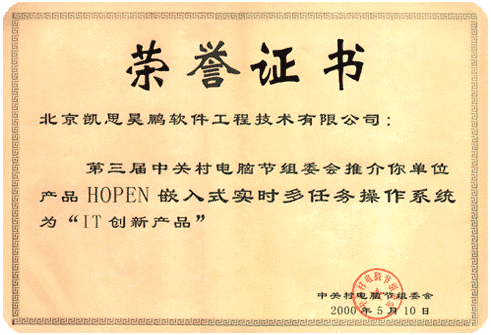 荣誉证书
北京凯思昊鹏软件工程技术有限公司：
第三届中关村电脑节组委会推介你单位
产品 HOPEN 嵌入式实时多任务操作系统
为“IT 创新产品”
中关村电脑节组委会
中关村电脑节组委会
2000 年 5 月 10 日